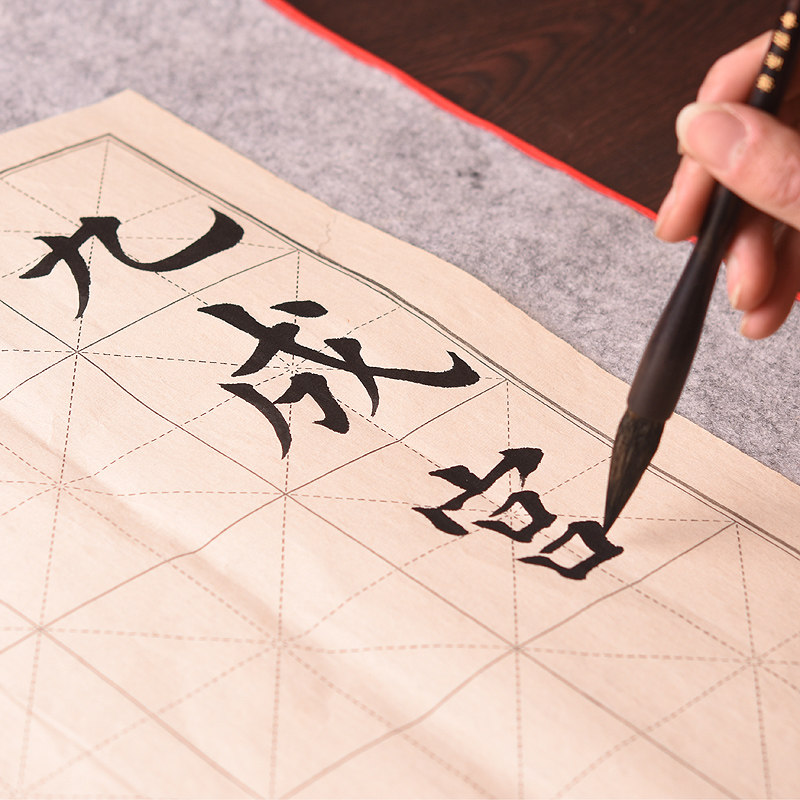 九成宫